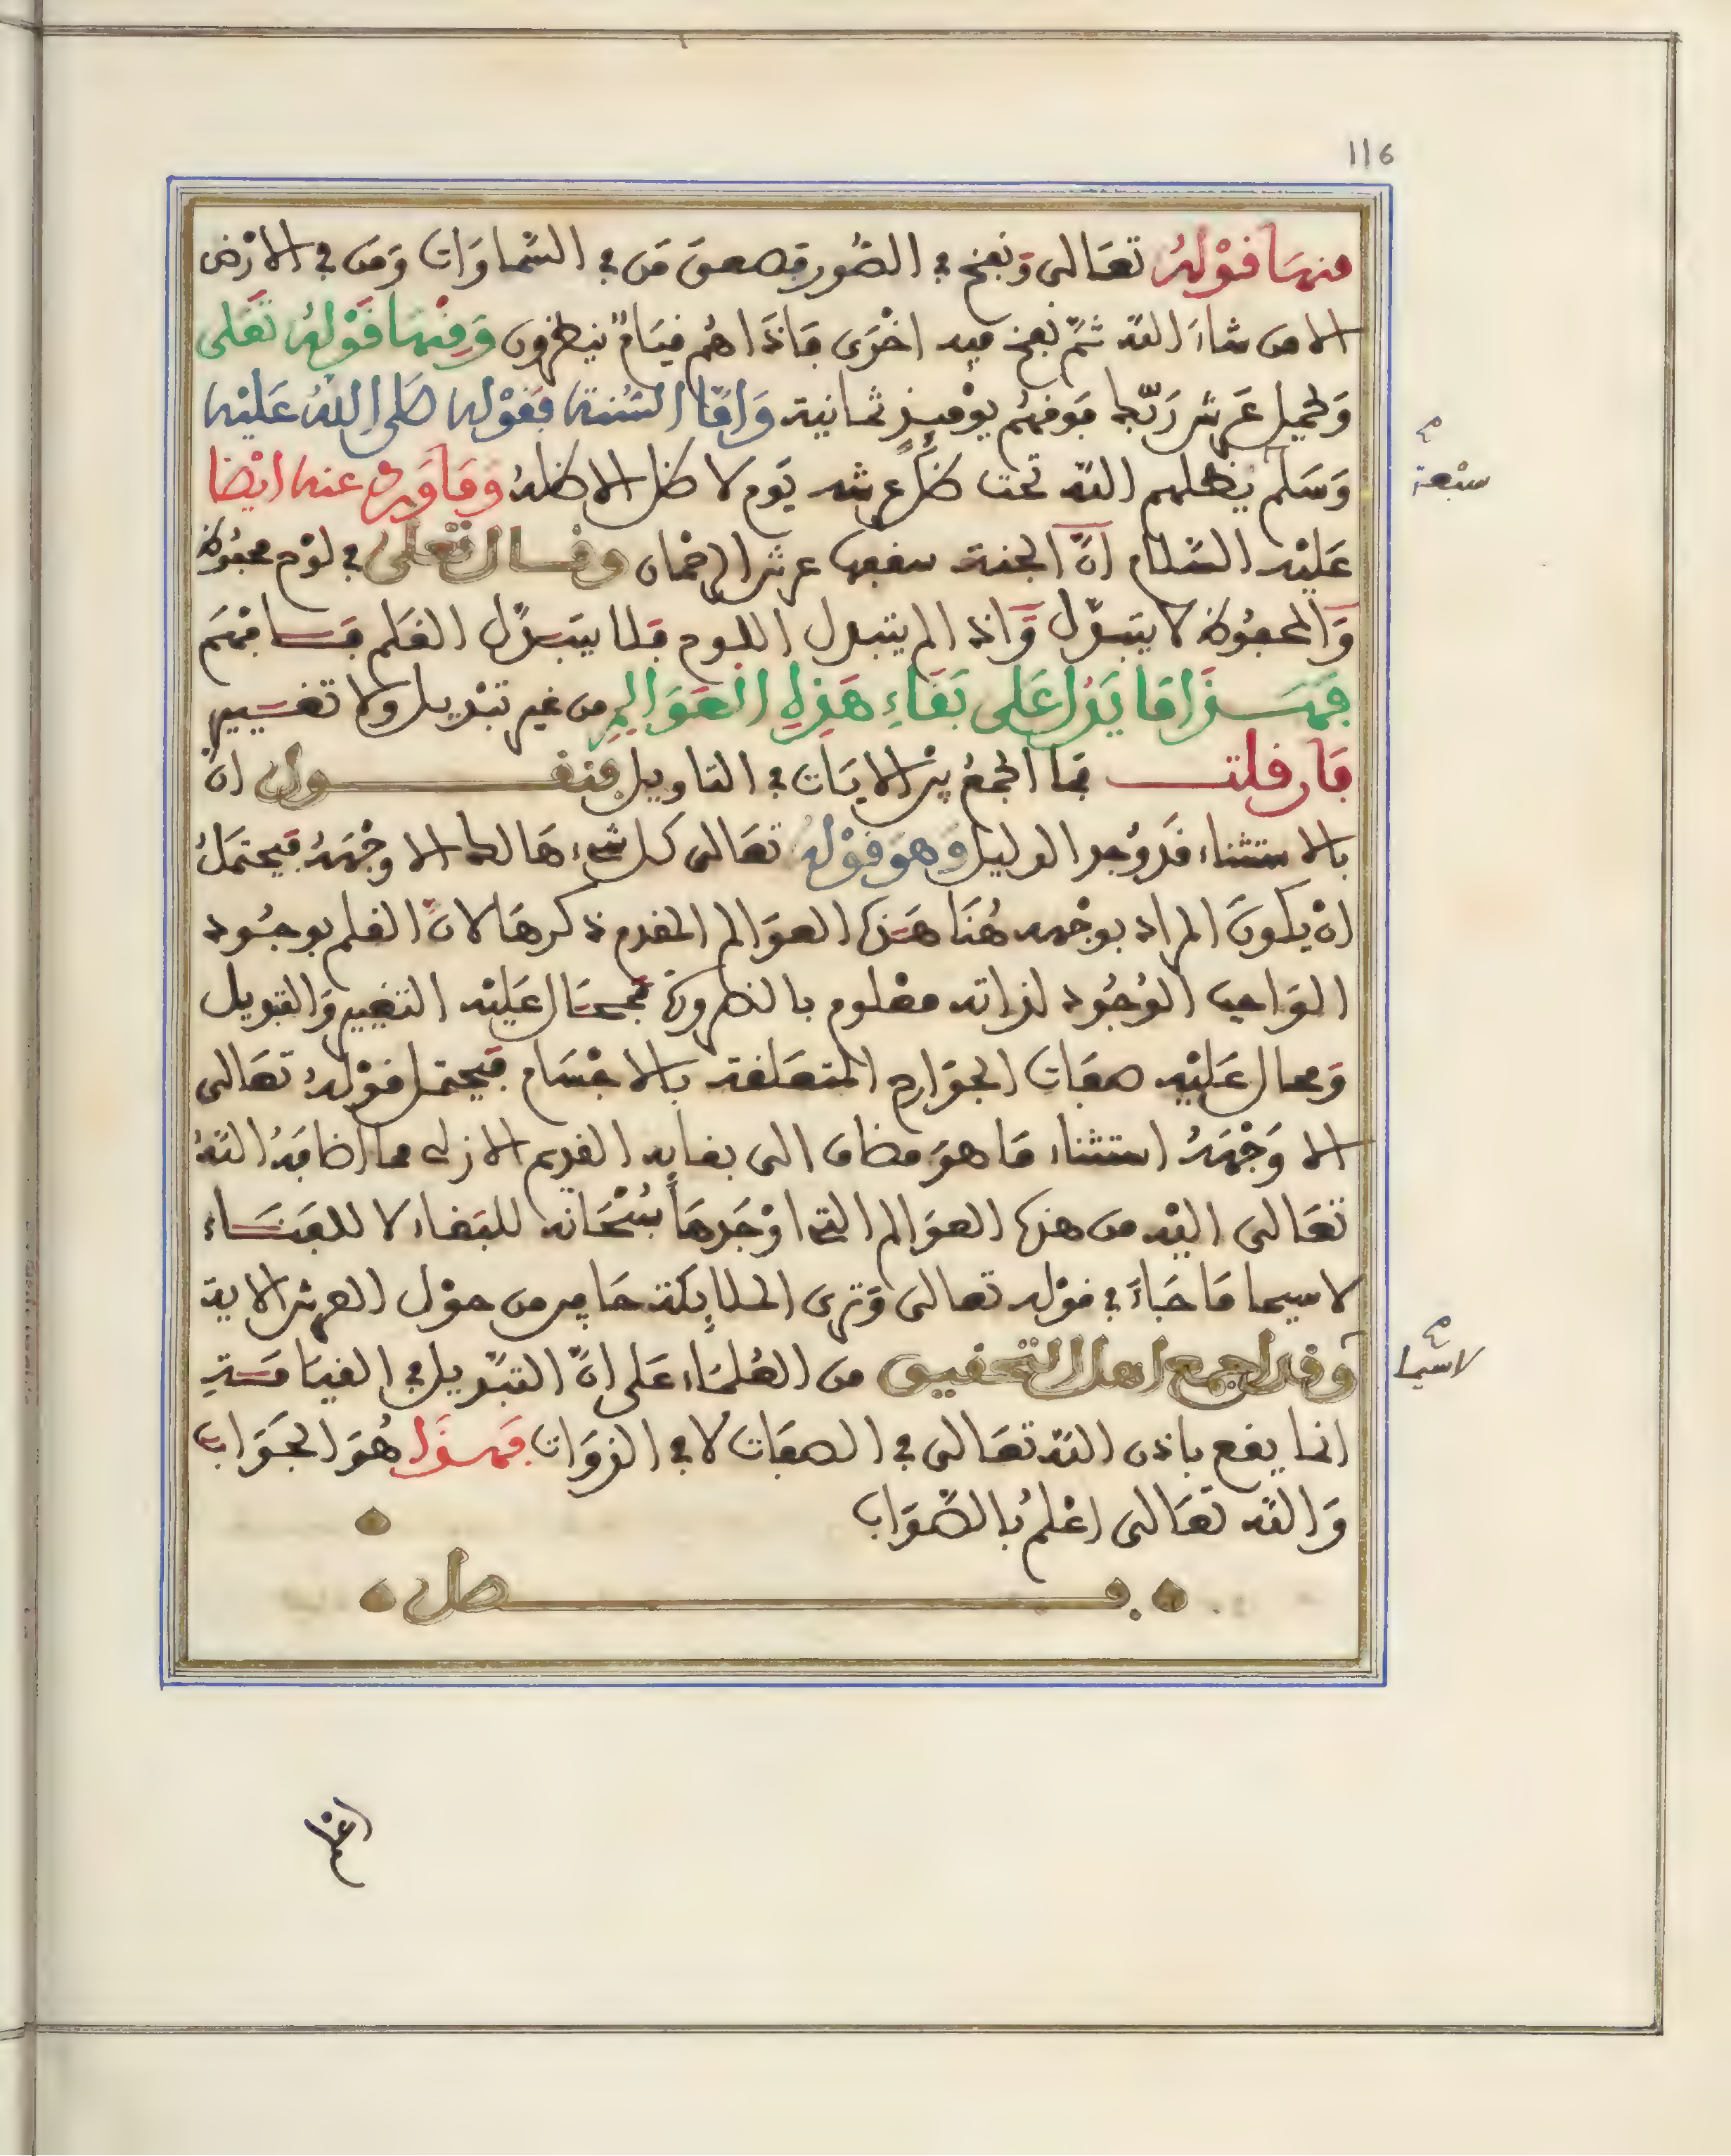 116
منها قوله تعالى ونفخ في الصور فصعق من في السماوات ومن في الارض
الا من شاء الله ثم نفخ فيه اخرى فاذا هم قيام ينظرون ومنها قوله تعلى
ويحمل عرش ربك فوقهم يومئذ ثمانية واما السنة فقوله صلى الله عليه
وسلم يظلهم الله تحت ظل عرشه يوم لا ظل الا ظله وما ورد عنه ايضا
سبعة
عليه السلام ان الجنة سقفها عرش الرحمان وقال تعلى في لوح محفوظ
والمحفوظ لا يتبدل واذا لم يتبدل اللوح فلا يتبدل القلم فافهم
فهذا ما يدل على بقاء هذه العوالم من غير تبديل ولا تغيير
فان قلت فما الجمع بين الايات في التاويل فنقول ان
بالاستثناء قد وجد الدليل وهو قوله تعالى كل شيء هالك الا وجهه فيحتمل
ان يكون المراد بوجهه هنا هذه العوالم المقدم ذكرها لان العلم بوجود
الواجب الوجود لذاته معلوم بالضرورة فمحال عليه التغيير والتبديل
ومحال عليه صفات الجوارح المتعلقة بالاجسام فيحتمل قوله تعالى
الا وجهه استثناء ما هو مضاف الى بقايه القديم الازلي مما اضافه الله
تعالى اليه من هذه العوالم التي اوجدها سبحانه للبقاء لا للفناء
لاسيما ما جاء في قوله تعالى وترى الملايكة حافين من حول العرش الاية
وقد اجمع اهل التحقيق من العلماء على ان التبديل في القيامة
لاسيما
انما يقع باذن الله تعالى في الصفات لا في الذوات فهذا هو الجواب
والله تعالى اعلم بالصواب
فصل
اعلم